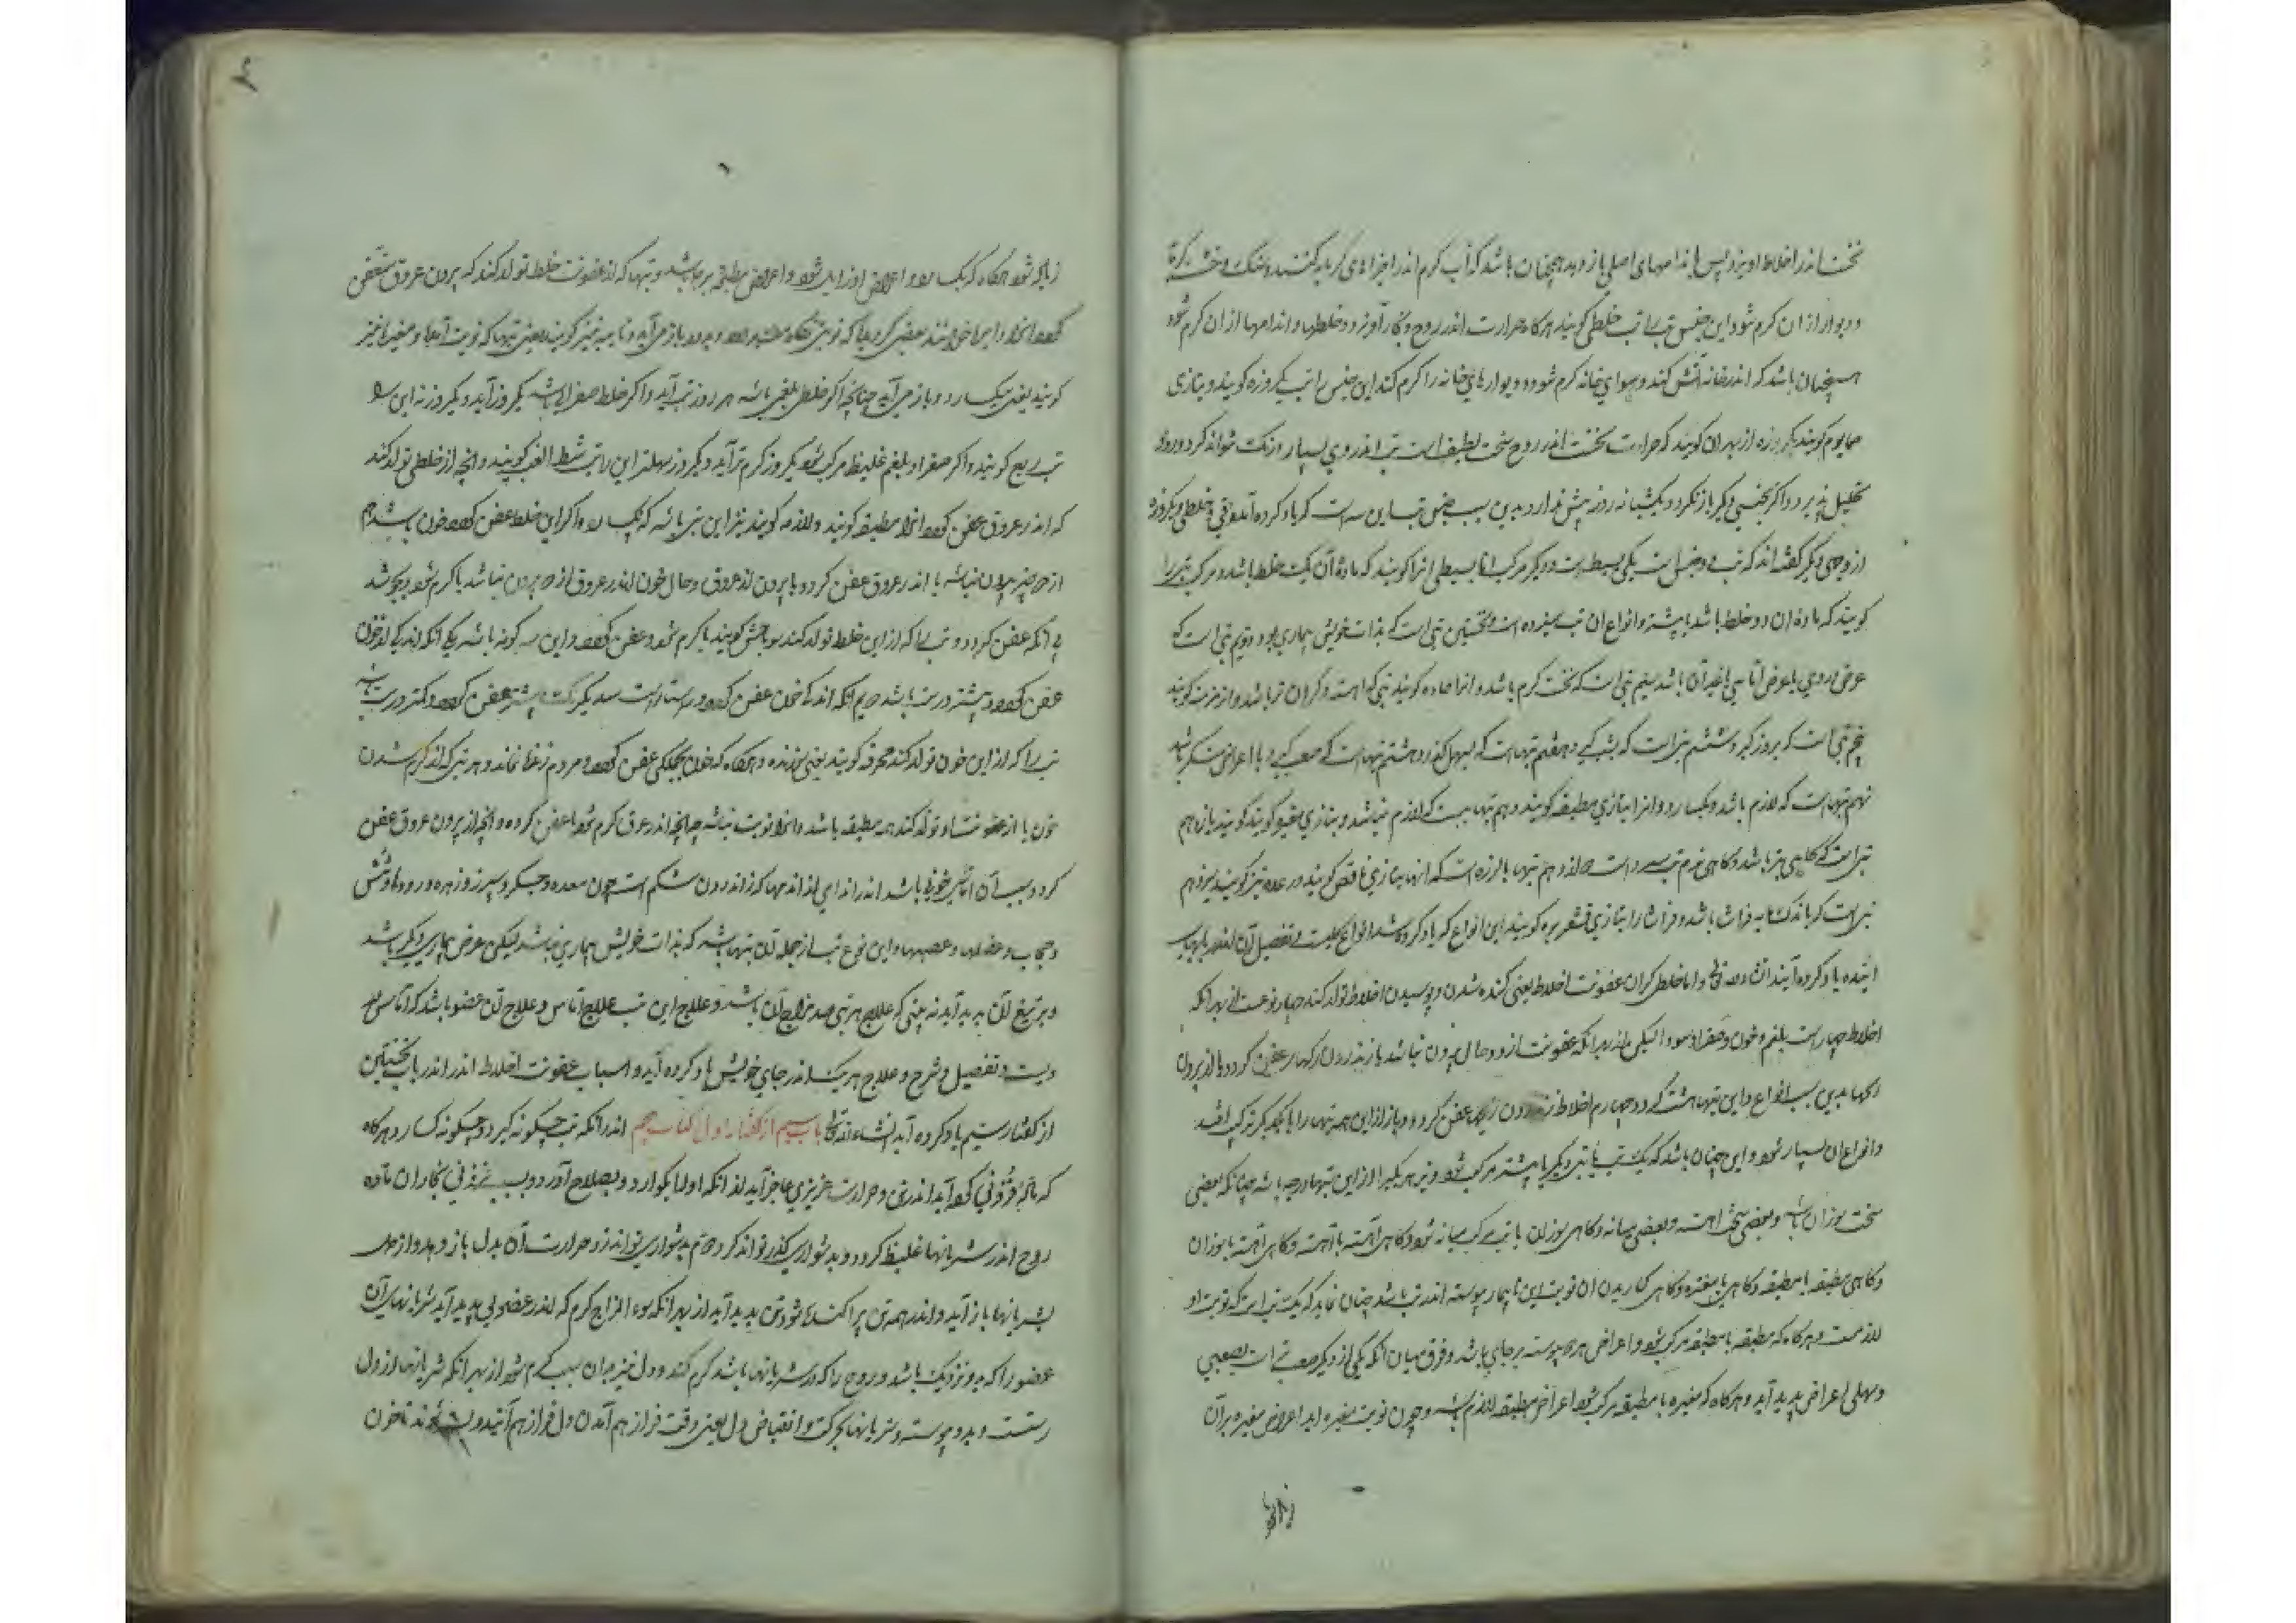 نخست اندر اخلاط آویزد پس باندامهای اصلی باز دهد همچنان باشد که آب گرم اندر اجزاهای گرمابه کنند و خشت گرمابه
و دیوار ازان گرم شود این جنس تب را تب خلطی گویند هرگاه حرارت اندر روح و بخار آویزد و خلطها و اندامها ازان گرم شود
همچنان باشد که اندر خانه آتش کند و هوای خانه گرم شود و دیوارهای خانه را گرم کند این جنس را تب یک روزه گویند و بتازی
حمایوم گویند یکروزه از بهر آن گویند که حرارت نخست اندر روح سخت لطیف است تب اندر وی بسیار درنگ نتواند کرد و زود
تحلیل پذیرد و اگر بجنسی دیگر باز نگردد یکشبانه روز بیش ندارد بدین سبب جنس تب این سه است که یاد کرده آمد دقی و خلطی و یکروزه
از وجهی دیگر گفته اند که تب دو جنس است یکی بسیط است و دیگر مرکب اما بسیطی آنرا گویند که ماده آن یک خلط باشد و مرکب تب را
گویند که ماده آن دو خلط باشد یا بیشتر و انواع آن تب سیزده است نخستین تبی است که بذات خویش بیماری بود دویم تبی است که
عرض اماسی یا غیر آن باشد سیم تبی است که سخت گرم باشد و آنرا حاده گویند تبی که آهسته و گران تر باشد و آنرا مزمن گویند
پنجم تبی است که بروز گیرد ششم تبی است که بشب گیرد هفتم تبها است که بسهل گذرد هشتم تبها است که صعب گیرد و با اعراض منکر باشد
نهم تبها است که لازم باشد و یکسارد و آنرا بتازی مطبقه گویند دهم تبهاییست که لازم نباشد و بتازی مفتره گویند یازدهم
تبی است که گاهی تیز باشد و گاهی نرم دوازدهم تبها با لرزه است که آنها بتازی نافض گویند و رعده نیز گویند سیزدهم
تبی است که باندک مایه فراشا باشد و فراشا را بتازی قشعریره گویند این انواع که یاد کرده شد انواع کلیست و تفصیل آن اندر بابهای
آینده یاد کرده آید انشاءالله تعالی و اما خلطی که از عفونت اخلاط یعنی گنده شدن و پوسیدن اخلاط تولد کند چهار نوعست از بهر آنکه
اخلاط چهار است بلغم و خون و صفرا و سودا لیکن از بهر آنکه عفونت از دو حال بیرون نباشد یا اندرون رگها عفن گردد یا از بیرون
رگها بدین سبب انواع این تبها هشت گردد چهارم اخلاط اندرون رگها عفن گردد و باز ازین همه تبها را با یکدیگر ترکیب افتد
و انواع آن بسیار شود و این چنان باشد که یک تب با تبی دیگر یا بیشتر مرکب شود و نیز هر یکی را ازین تبها درجه باشد چنانکه بعضی
سخت سوزان باشد و بعضی سخت آهسته و بعضی میانه و گاهی سوزان با تب میانه شود و گاهی آهسته با آهسته و گاهی آهسته با سوزان
و گاهی مطبقه با مطبقه و گاهی با مفتره و گاهی نوبت این تا بیمار پیوسته اندر تب باشد چنان نماید که یک تب است که نوبت او
لازمست و هرگاه که مطبقه با مطبقه مرکب شود اعراض هر دو پیوسته بر جای باشد و فرق میان آنکه یکی از دیگر صعب تر است بصعبی
و سهلی اعراض پدید آید و هرگاه که مفتره با مطبقه مرکب شود اعراض مطبقه لازم باشد و چون نوبت مفتره آید اعراض مفتره بران
زیاده
زیاده شود هرگاه که بگسارد اعراض او زایل شود و اعراض مطبقه بر جا باشد و تبها که از عفونت خلط تولد کند که بیرون عروق متعفن
گویند یعنی بگسارد و باز می آید چنانچه اگر خلط بلغمی باشد هر روز تب آید و اگر خلط صفرا باشد یکروز آید و یکروز نه این را
تب ربع گویند و اگر صفرا و بلغم غلیظ مرکب شود یکروز گرم تر آید و یکروز سهلتر این را تب شطر الغب گویند و آنچه از خلطی تولد کند
که اندر عروق عفن گردد آنرا مطبقه گویند و لازمه گویند نیز این تبی باشد که نگسارد و اگر این خلط عفن گردد خون باشد هم
از دو چیز بیرون نباشد یا اندر عروق عفن گردد یا بیرون از عروق و حال خون اندر عروق از دو بیرون نباشد یا گرم شود و بجوشد
بی آنکه عفن گردد و تب را که ازین خلط تولد کند سوناخس گویند یا گرم شود و عفن گردد و این سه گونه باشد یکی آنکه اندکی از خون
عفن گردد و بیشتر درست باشد دویم آنکه اندکی خون عفن گردد سدیگر آنکه بیشتر عفن گردد و کمتر درست باشد
تب را که ازین خون تولد کند محرقه گویند یعنی سوزنده و هرگاه که خون بجملگی عفن گردد مردم زنده نماند و هر تبی که از گرم شدن
خون یا از عفونت او تولد کند همه مطبقه باشد و آنرا نوبت نباشد چنانچه اندر عرق گرم شود یا عفن گردد و آنچه از بیرون عروق عفن
گردد سبب آن آماس خونی باشد اندر اندامی از اندامها که اندرون شکم است چون معده و جگر و سپرز و زهره و روده و شش
و حجاب و عضلها و عصبها و این نوع تب از جمله آن تبها باشد که بذات خویش بیماری نباشد لیکن عرض بیماری دیگر باشد
و بر تبع آن پدید آید نه تبی که علاج هر تبی ضد مزاج آن باشد و علاج این تب علاج آماس و علاج آن عضو باشد که آماس در
ویست و تفصیل و شرح و علاج هر یک اندر جای خویش یاد کرده آید و اسباب عفونت اخلاط اندر باب نخستین
از گفتار سیم یاد کرده آید انشاءالله تعالی باب سیم از گفتار اول کتاب پنجم اندر آنکه تب چگونه گیرد و چگونه گسارد هرگاه
که تری فزونی گرد آید اندر تن و حرارت غریزی عاجز آید از آنکه او را بگوارد و بصلاح آورد و بسبب فزونی بخار آن ماده
روح اندر شریانها غلیظ گردد و بدشواری گذر تواند کرد و دم بدشواری تواند زد و حرارت آن بدل باز دهد و از دل
بشریانها باز آید و اندر همه تن پراکنده شود تب پدید آید از بهر آنکه سوء المزاج گرم که اندر عضوی پدید آید شریانهای آن
عضو را که بدو نزدیک باشد و روح را که در شریانها باشد گرم کند و دل نیز بدان سبب گرم شود از بهر آنکه شریانها از دل
رستست و بدو پیوسته و شریانها بحرکت و انقباض دل یعنی وقت فراز هم آمدن دل فراز هم آیند تا خون